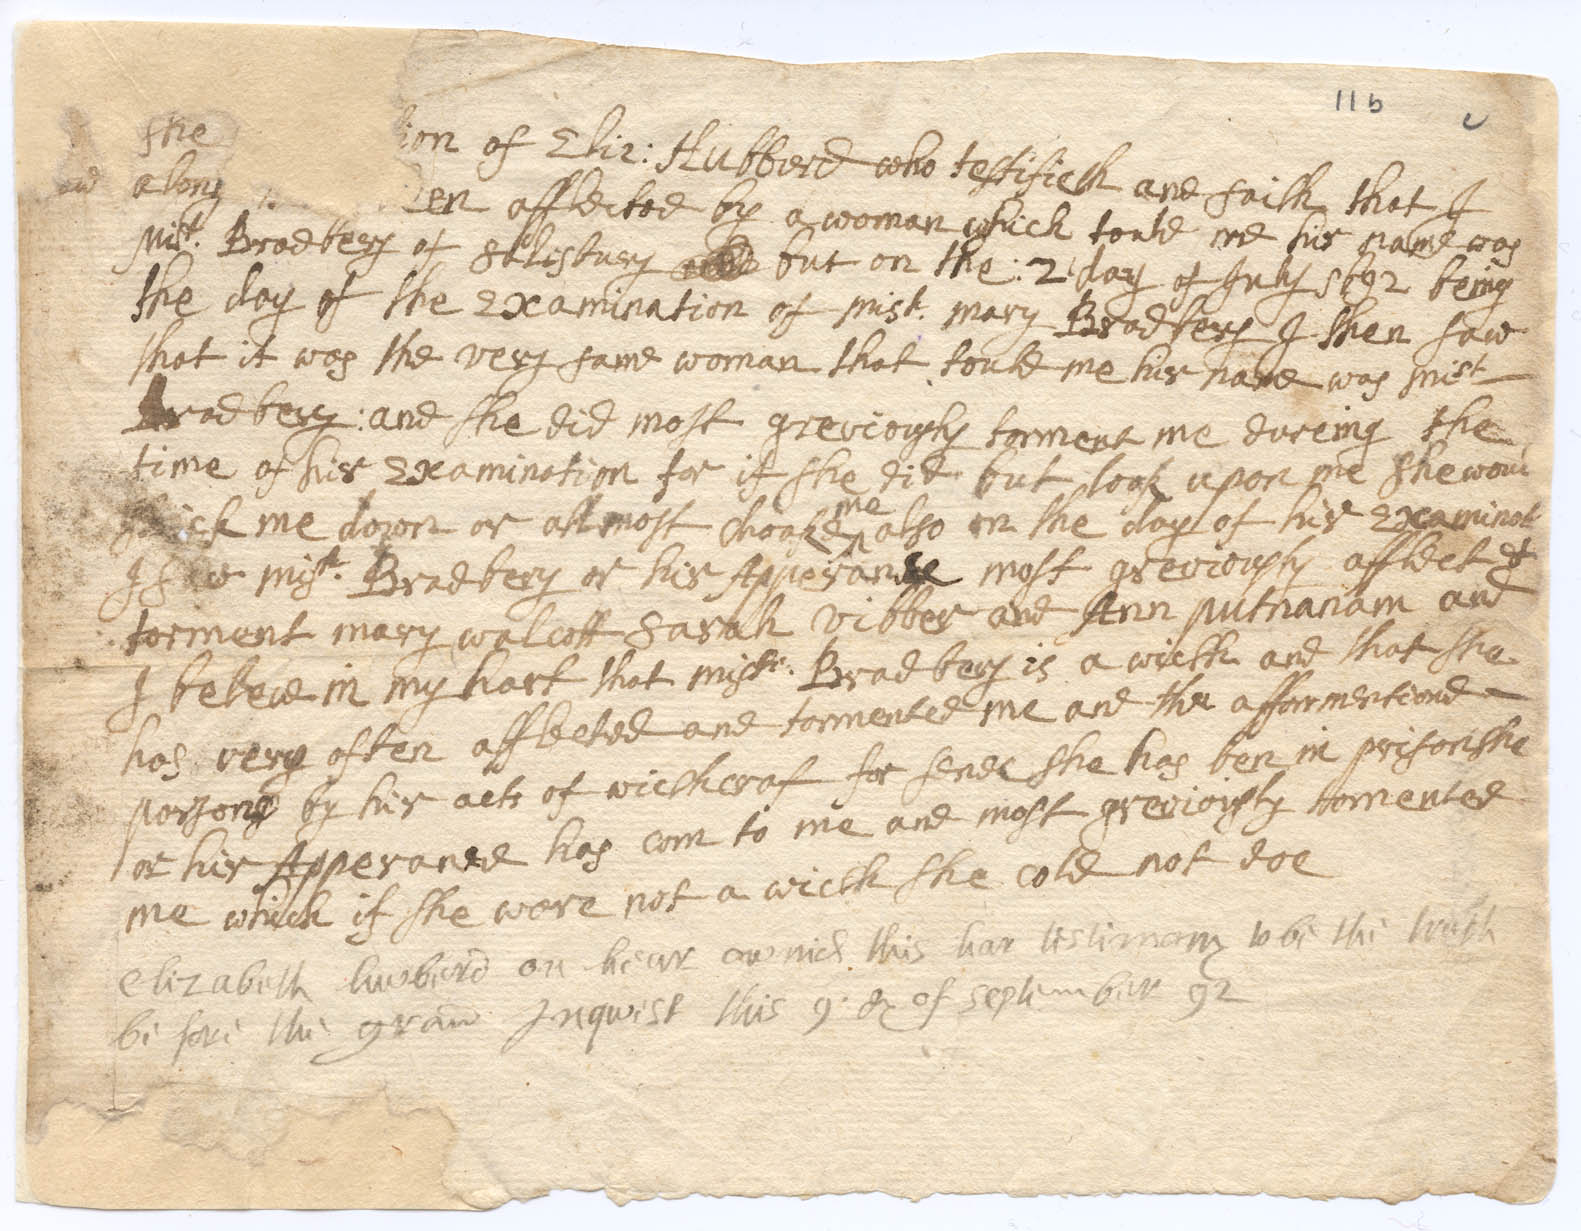 11b
The          tion of Eliz: Hubberd who testifieth and saith that I
along          ben afflected by a woman which tould me hir name was
mist. Bradbery of Salisbury but on the: 2 day of July 1692 being
the day of the Examination of mist. mary Bradbery I then saw
that it was the very same woman that tould me hir name was mist
Bradbery: and she did most greviously torment me dureing the
time of hir Examination for if she did but look upon me she would
strick me down or allmost choake me also on the day of hir Examinat
I saw mist. Bradbery or hir Apperance most greviously afflect &
torment mary walcott Sarah vibber and Ann putnanam and
I beleve in my hart that mistr. Bradbery is a wicth and that she
has very often afflected and tormented me and the afformentioned
parsons by hir acts of wicthcraf for sence she has ben in prison she
or hir Apperance has com to me and most greviously tormented
me which if she ware not a wicth she cold not doe
Elizabeth hubberd on hear this har testimony to be the truth
be fore the grand Inqwest this 9: dy of September 92